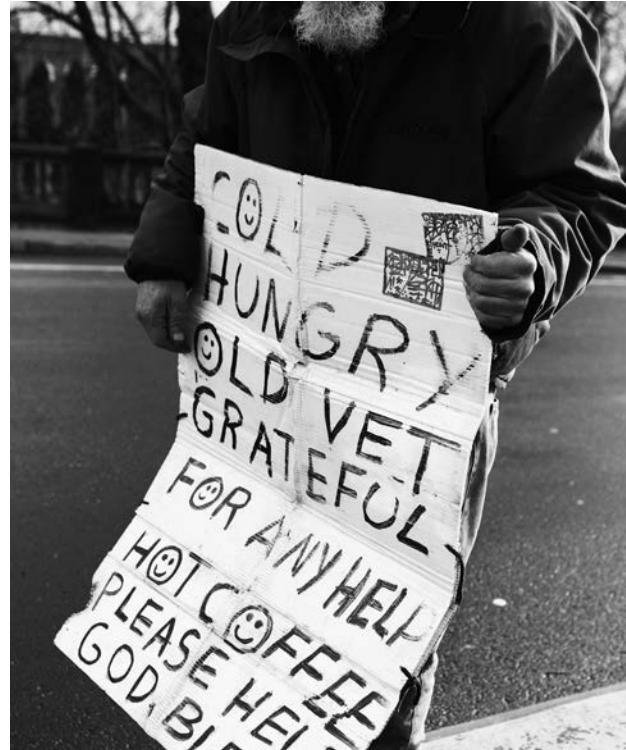 COLD
HUNGRY
OLD VET
GRATEFUL
FOR ANY HELP
HOT COFFEE
PLEASE HEL
GOD BLE